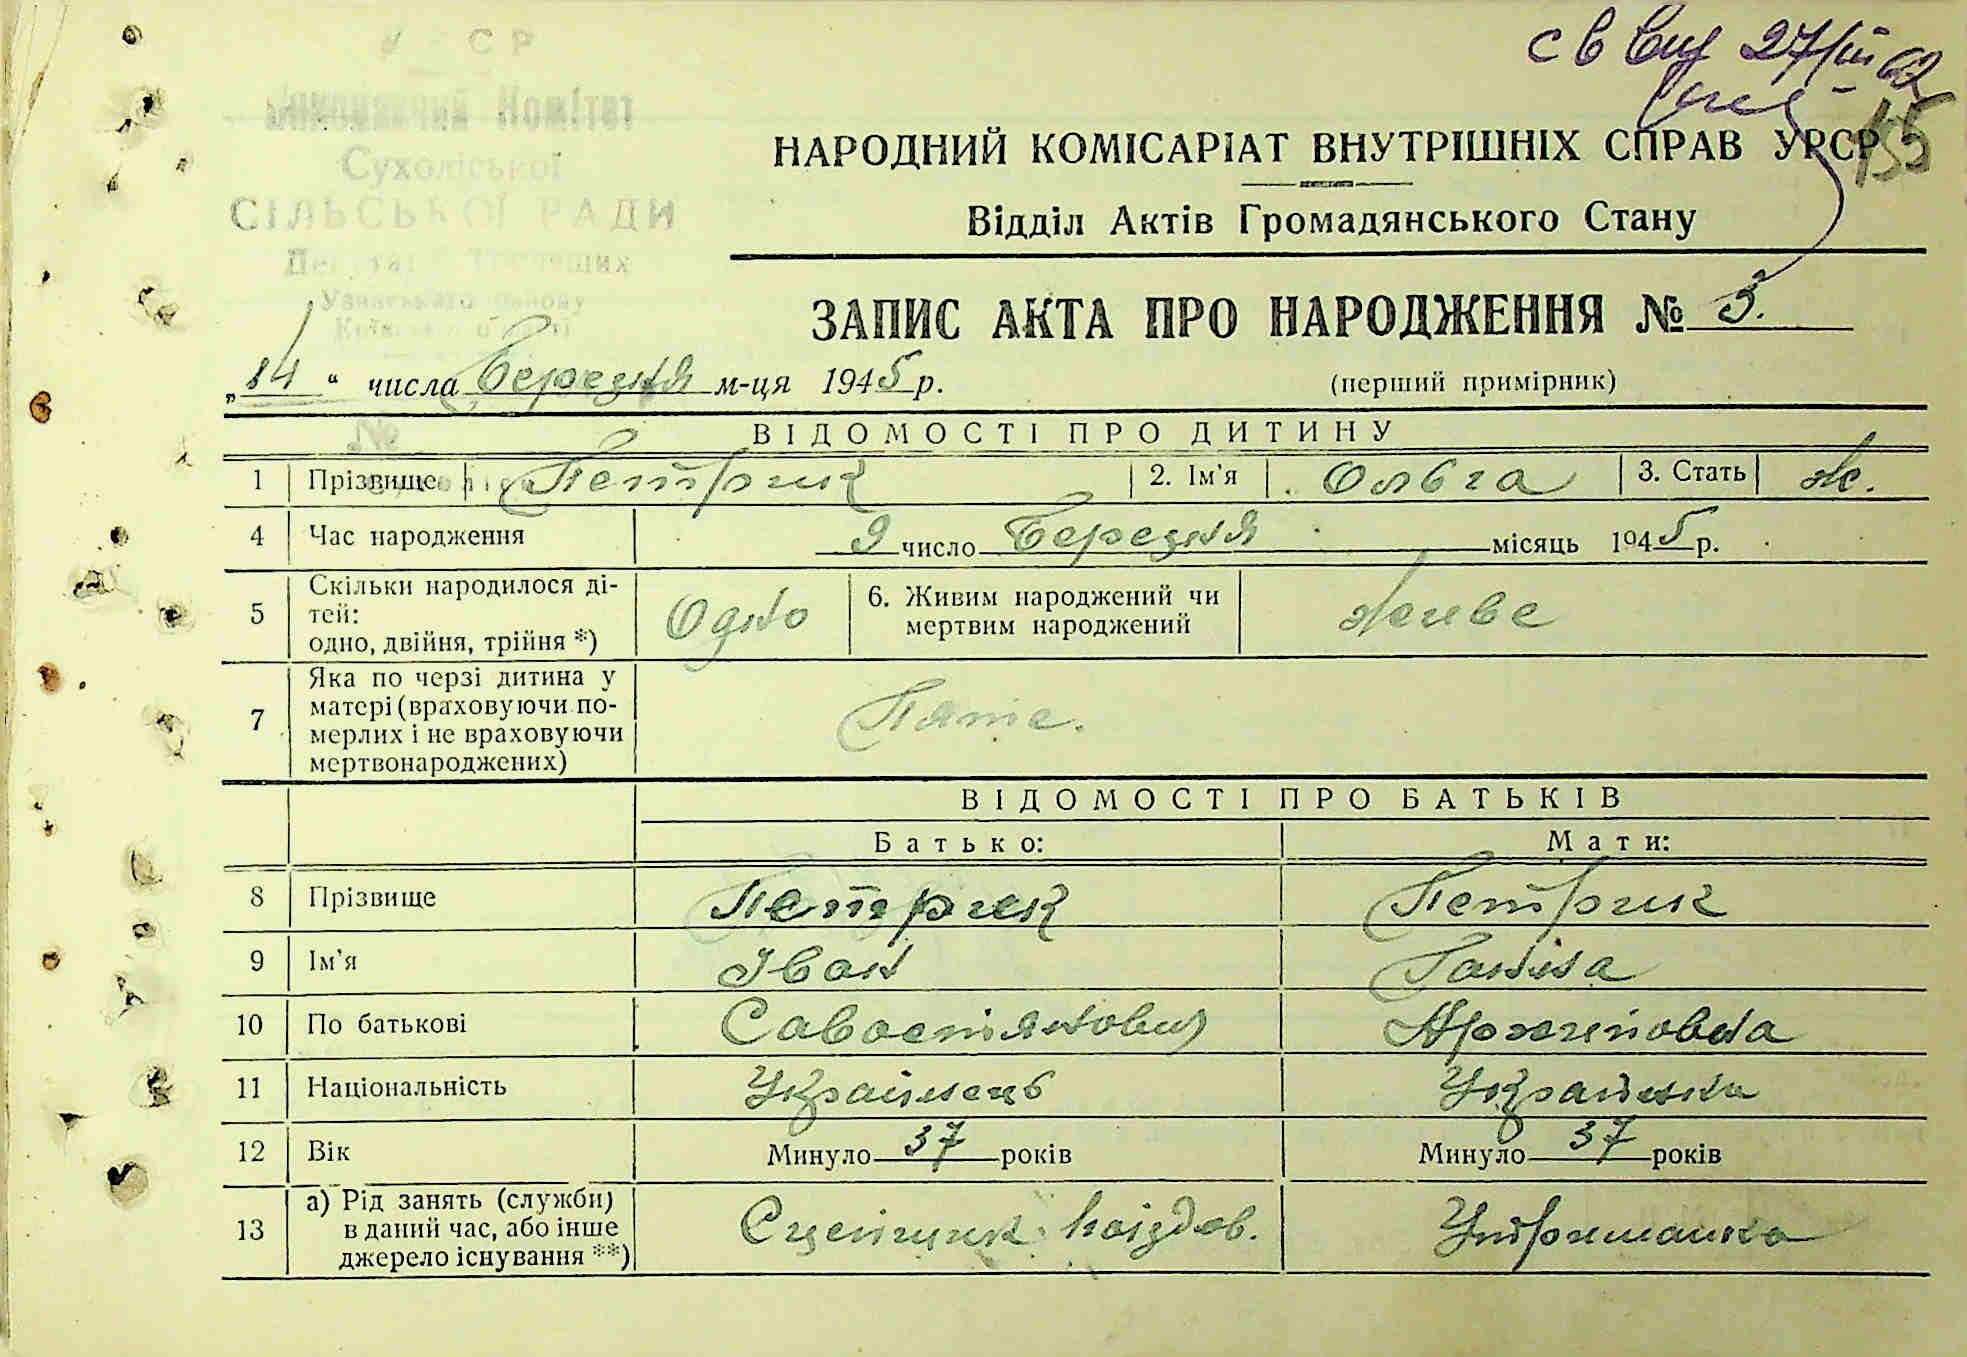 с в выд 27/III 62
155
СР
Виконавчий Комітет
Сухоліської
СІЛЬСЬКОЇ РАДИ
НАРОДНИЙ КОМІСАРІАТ ВНУТРІШНІХ СПРАВ УРСР
Відділ Актів Громадянського Стану
ЗАПИС АКТА ПРО НАРОДЖЕННЯ № 3.
„14“ числа Березня м-ця 1945 р. (перший примірник)
№
ВІДОМОСТІ ПРО ДИТИНУ
1 Прізвище Петрик 2. Ім'я Ольга 3. Стать ж.
4 Час народження 9 число Березня місяць 1945 р.
5 Скільки народилося ді-
тей:
одно, двійня, трійня *) Одно 6. Живим народжений чи
мертвим народжений живе
7 Яка по черзі дитина у
матері (враховуючи по-
мерлих і не враховуючи
мертвонароджених) Пяте.
ВІДОМОСТІ ПРО БАТЬКІВ
Батько: Мати:
8 Прізвище Петрик Петрик
9 Ім'я Іван Ганна
10 По батькові Савостянович Архиповна
11 Національність Українець Українка
12 Вік Минуло 37 років Минуло 37 років
13 а) Рід занять (служби)
в даний час, або інше
джерело існування **) Сцепщик поїздов. Утриманка